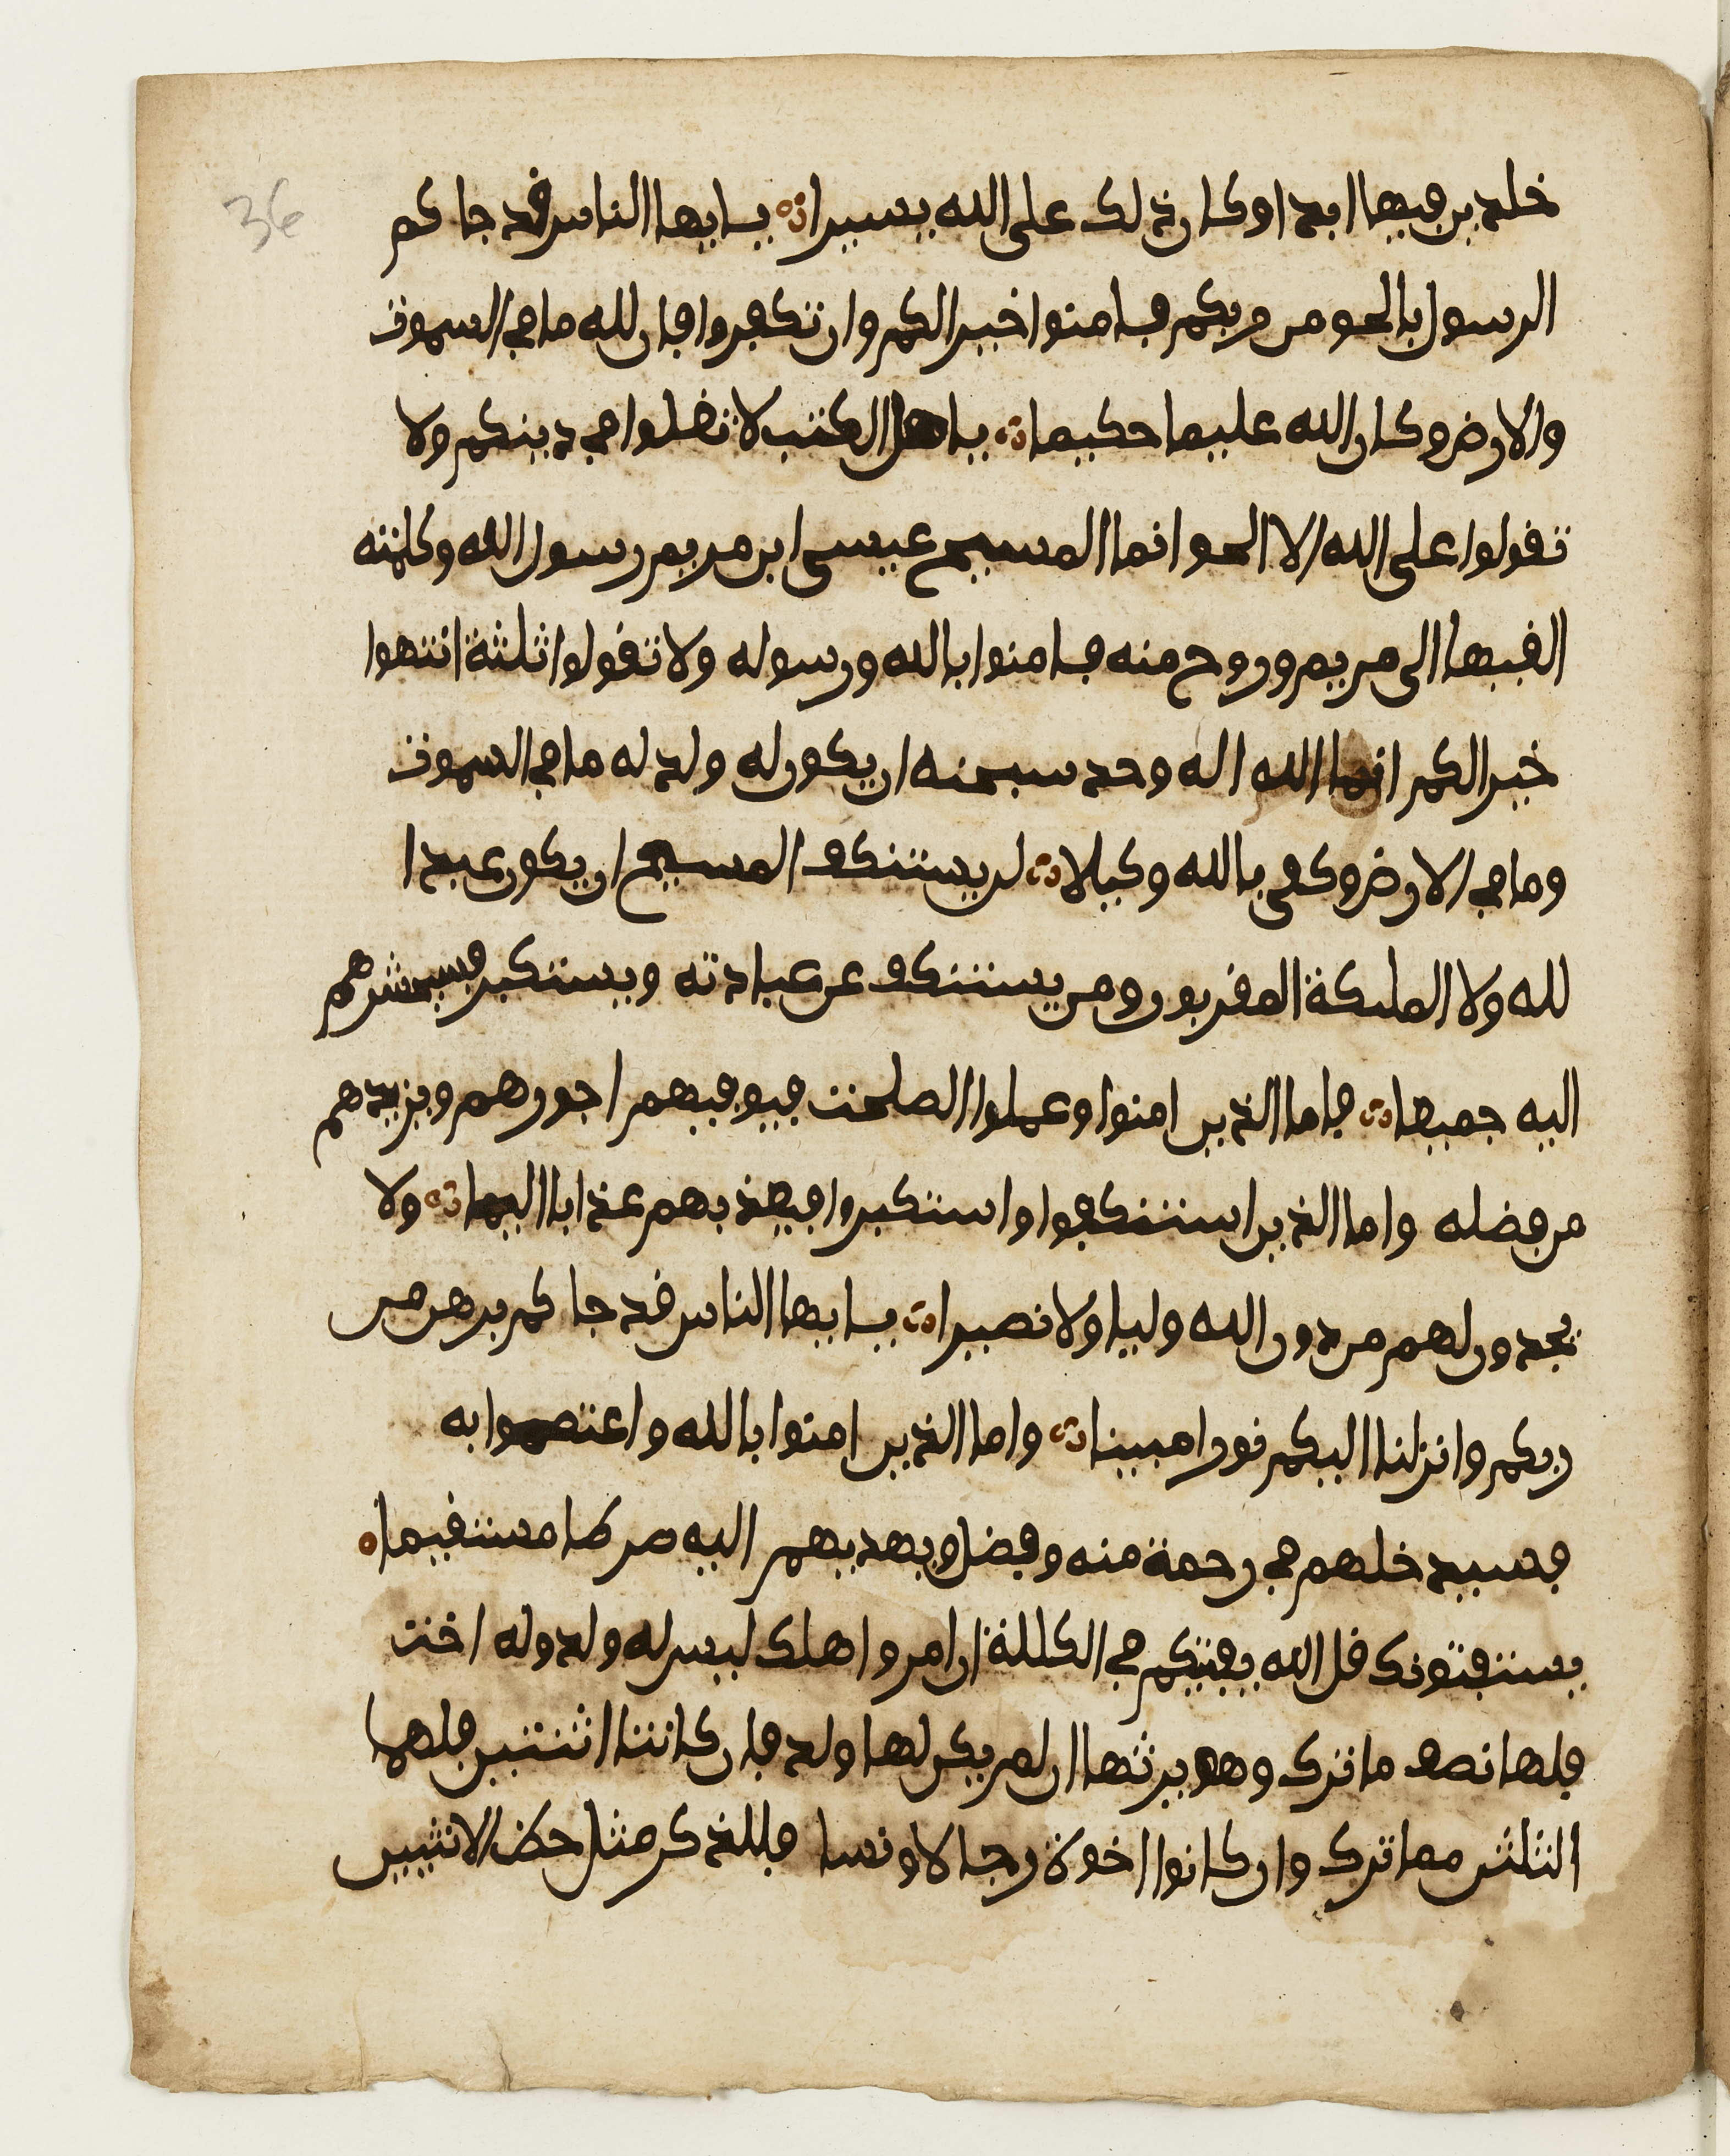 36
خلدين فيها ابدا وكان ذلك على الله يسيرا يايها الناس قد جاكم
الرسول بالحق من ربكم فامنوا خيرا لكم وان تكفروا فان لله ما في السموت
والارض وكان الله عليما حكيما ياهل الكتب لا تغلوا في دينكم ولا
تقولوا على الله الا الحق انما المسيح عيسى ابن مريم رسول الله وكلمته
القيها الى مريم وروح منه فامنوا بالله ورسوله ولا تقولوا ثلثة انتهوا
خيرا لكم انما الله اله وحد سبحنه ان يكون له ولد له ما في السموت
وما في الارض وكفى بالله وكيلا لن يستنكف المسيح ان يكون عبدا
لله ولا الملىكة المقربون ومن يستنكف عن عبادته ويستكبر فسيحشرهم
اليه جميعا فاما الذين امنوا وعملوا الصلحت فيوفيهم اجورهم ويزيدهم
من فضله واما الذين استنكفوا واستكبروا فيعذبهم عذابا اليما ولا
يجدون لهم من دون الله وليا ولا نصيرا يايها الناس قد جاكم برهن من
ربكم وانزلنا اليكم نورا مبينا واما الذين امنوا بالله واعتصموا به
فسيدخلهم في رحمة منه وفضل ويهديهم اليه صرطا مستقيما
يستفتونك قل الله يفتيكم في الكللة ان امروا هلك ليس له ولد وله اخت
فلها نصف ما ترك وهو يرثها ان لم يكن لها ولد فان كانتا اثنتين فلهما
الثلثن مما ترك وان كانوا اخوة رجالا ونسا فللذكر مثل حظ الانثيين